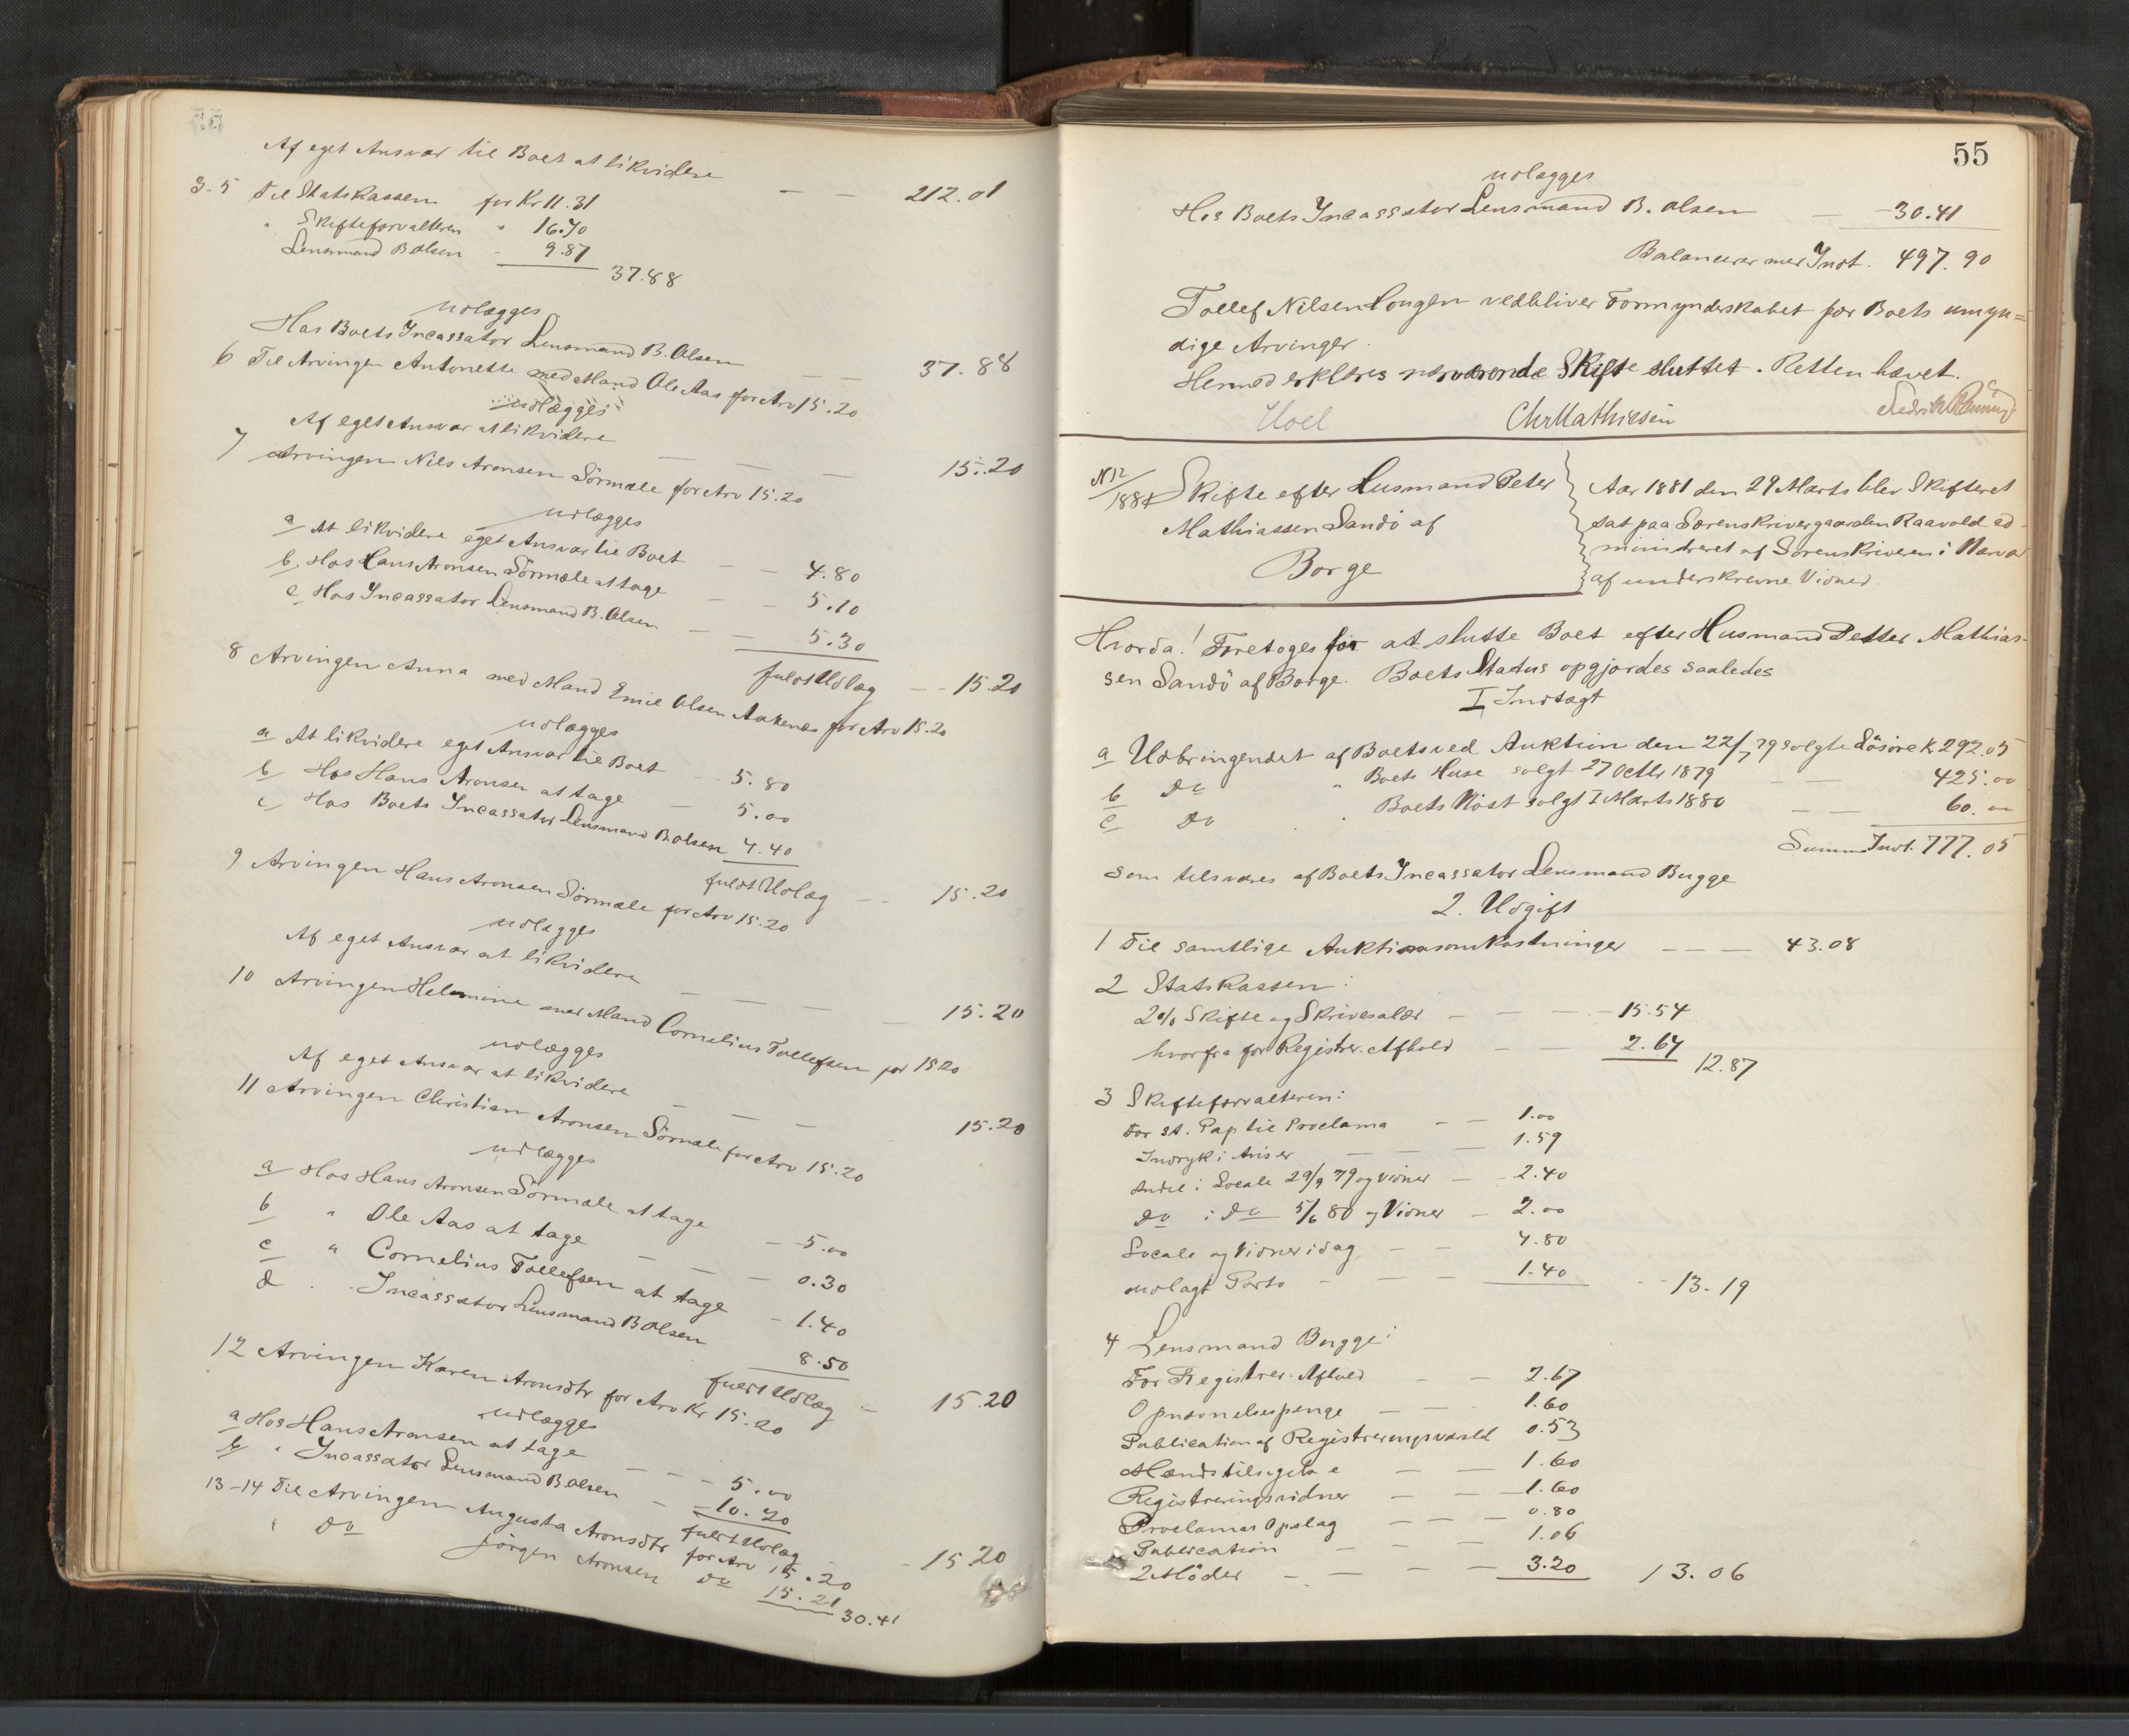 Af eget Ansvar til Boet at likvidere — — 212.01
3-5 Til Statskassen for Kr 11.31
" Skifteforvalteren " 16.70
Lensmand B Olsen - 9.87
37.88
udlægges
Hos Boets Incassator Lensmand B. Olsen — — 37.88
6 Til Arvingen Antonette med Mand Ole Aas for Arv 15.20
udlægges
Af eget Ansvar at likvidere — — — 15.20
7 Arvingen Nils Aronsen Sörmæle for Arv 15.20
udlægges
a At likvidere eget Ansvar til Boet — — 4.80
b. Hos Hans Aronsen Sörmæle at tage — — 5.10
c Hos Incassator Lensmand B. Olsen — — 5.30
fuldt Udlæg — - 15.20
8 Arvingen Anna med Mand Emil Olsen Aakenes for Arv 15.20
udlægges
a At likvidere eget Ansvar til Boet - - 5.80
b Hos Hans Aronsen at tage — 5.00
c Hos Boets Incassator Lensmand B. Olsen 4.40
fuldt Udlæg — - 15.20
9 Arvingen Hans Aronsen Sörmæle for Arv 15.20
udlægges
Af eget Ansvar at likvidere — — — — 15.20
10 Arvingen Helmine med Mand Cornelius Tollefsen for 15.20
udlægges
Af eget Ansvar at likvidere — — — 15.20
11 Arvingen Christian Aronsen Sörmæle for Arv 15.20
udlægges
a Hos Hans Aronsen Sörmæle at tage — 5.00
b " Ole Aas at tage — — — 0.30
c " Cornelius Tollefsen at tage - 1.40
d . . Incassator Lensmand B Olsen 8.50
fuldt Udlæg — 15.20
12 Arvingen Karen Aronsdtr for Arv Kr 15.20
udlægges
a Hos Hans Aronsen at tage — — - 5.00
b " Incassator Lensmand B Olsen — 10.20
fuldt Udlæg - - 15 20
13-14 Til Arvingen Augusta Aronsdtr for Arv 15.20
" Do Jörgen Aronsen do 15.21
30.41
55
udlægges
Hos Boets Incassator Lensmand B. Olsen — 30.41
Balancerer med Indt. 497.90
Tollef Nilsen Longen vedbliver Formynderskabet for Boets umyn=
dige Arvinger.
Hermed erklæres nærværende Skifte sluttet. Retten hævet.
Hoel Chr Mathiesen Fredrik
N 12/1881 Skifte efter Husmand Peter
Mathiassen Sandö af
Borge
Aar 1881 den 29 Marts blev Skifteret
sat paa Sorenskrivergaarden Raavold ad-
ministreret af Sorenskriveren i Nærvær
af underskrevne Vidner.
Hvorda! Foretoges for at slutte Boet efter Husmand Petter Mathias-
sen Sandö af Borge. Boets Status opgjordes saaledes
I Indtægt
a Udbringendet af Boets ved Auktion den 22/7 79 solgte Lösöre K 292.05
b Do " Boets Huse solgt 27 Octbr 1879 — — 425.00
c Do . " Boets Nöst solgt I Marts 1880 — — 60.00
Summa Indt. 777.05
som tilsvares af Boets Incassator Lensmand Bugge
2. Udgift
1 Til samtlige Auktionsomkostninger — — — 43.08
2 Statskassen:
2% Skifte og Skrivesalær — — — 15.54
hvorfra for Registr. Afhold — — 2.67
12.87
3 Skifteforvalteren:
For st. Pap til Proclama — — 1.00
Indryk i Aviser — — — 1.59
Andel i Locale 29/9 79 og Vidner — - 2.40
Do i Do 5/6 80 og Vidner — 2.00
Locale og Vidner idag — — 4.80
udlagt Porto — — — 1.40
13.19
4 Lensmand Bugge:
For Registrer. Afhold — — 2.67
Opnævnelsespenge — — 1.60
Publication af Registreringsvidner 0.53
Mænds tilsigelse — — 1.60
Registreringsvidner — — 1.60
Proclamas Opslag — — — 0.80
Publication — — — 1.06
2 Möder — — — — 3.20
13.06